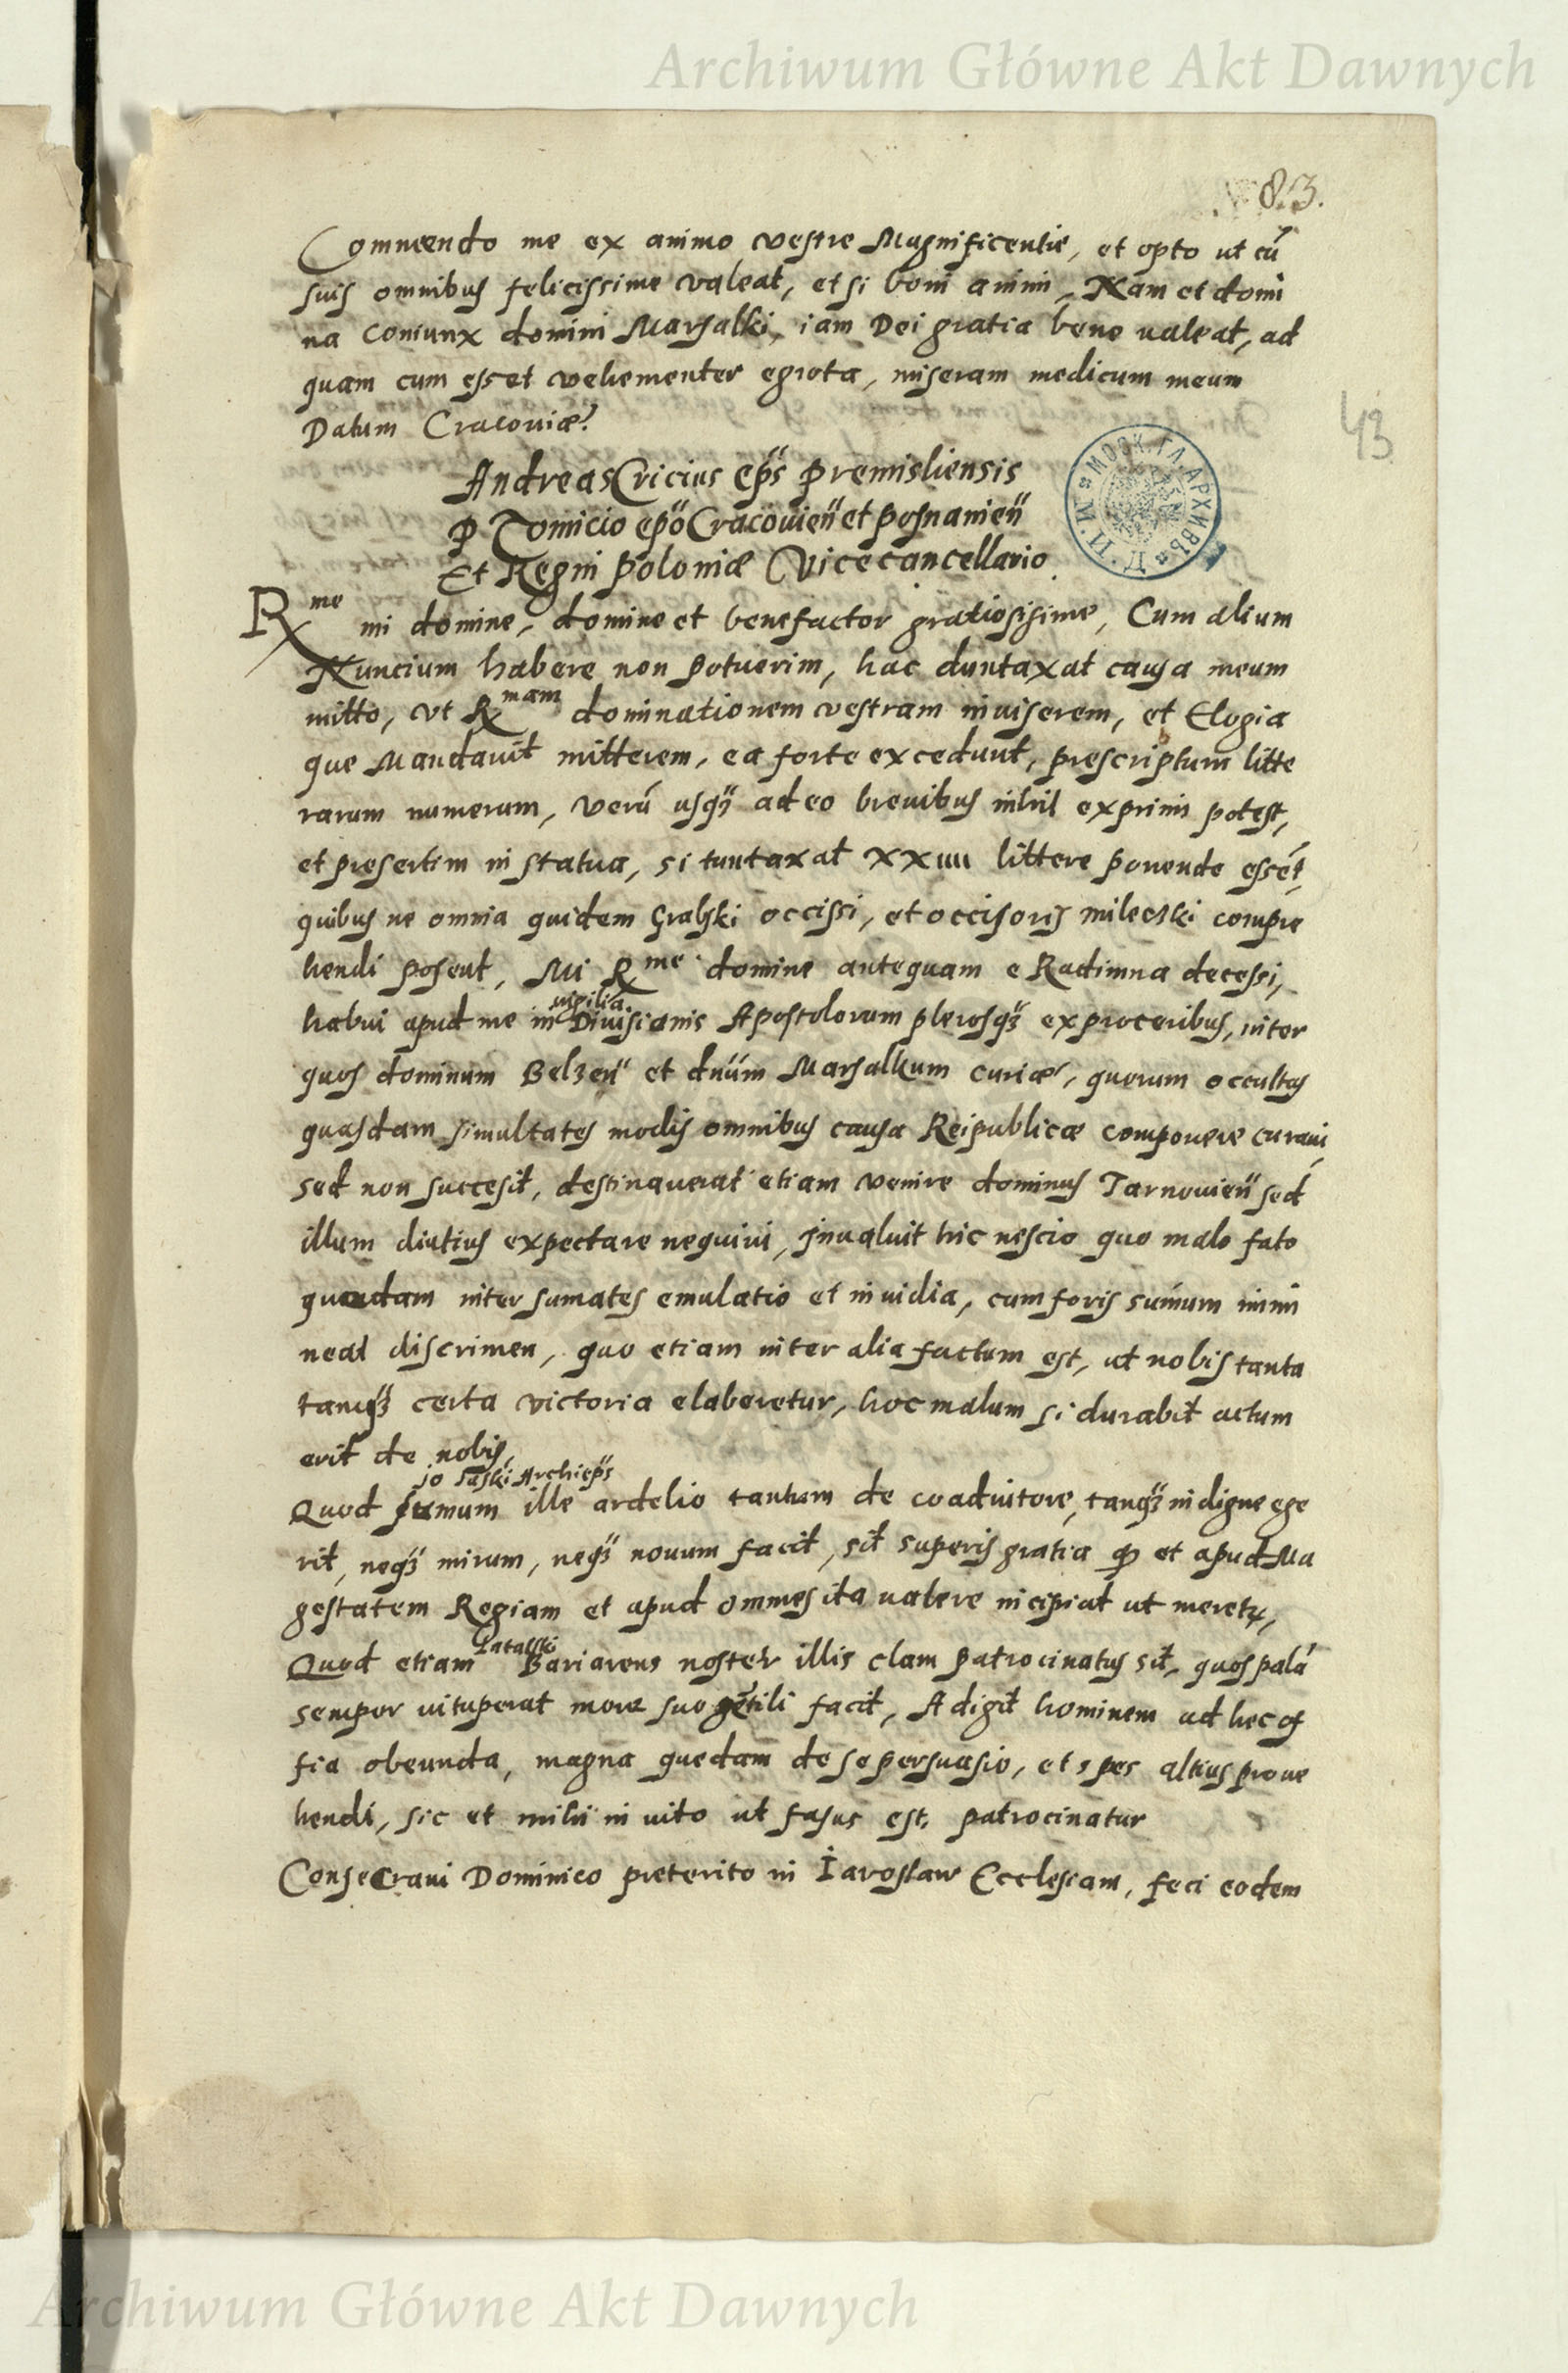 Archiwum Główne Akt Dawnych
83.
Commendo me ex animo vestre Magnificentie, et opto ut cū
suis omnibus felicissime valeat, et si boni animi, Nam et domi
na coniunx domini Marsalki, iam Dei gratia bene valeat, ad
quam cum esset vehementer egrota, miseram medicum meum
Datum Cracoviæ.
43
Andreas Cricius ep̄s Premisliensis
P Tomicio ep̄o Cracovień et posnanień
Et Regni poloniæ Vicecancellario
МОСК. ГЛ. АРХИВЪ
Rme mi domine, domine et benefactor gratiosissime, Cum alium
Nuncium habere non potuerim, hac duntaxat causa meum
mitto, ut Rmam dominationem vestram inviserem, et Elogia
que Mandavit mitterem, ea forte excedunt, prescriptum litte
rarum numerum, verū usq; adeo brevibus nihil exprimi potest,
et presertim in statua, si tuntaxat xxiiii littere ponende essēt,
quibus ne omnia quidem Gralski occissi, et occisoris mileoski compre
hendi posent, Mi Rme domine antequam e Radimna decessi,
vigilia
habui apud me in Divisionis Apostolorum plerosq; ex proceribus, inter
quos dominum Belzeń et dnūm Marsalkum curiæ, quorum occultas
quasdam simultates modis omnibus causa Reipublicæ componere curavi,
sed non succesit, destinaverat etiam venire dominus Tarnovień sed
illum diutius expectare nequivi, Invaluit hic nescio quo malo fato
quædam inter sumates emulatio et invidia, cum foris sūmum immi
neat discrimen, quo etiam inter alia factum est, ut nobis tanta
tamq; certa victoria elaberetur, hoc malum si durabit actum
erit de nobis,
Jo Laski Archiep̄s
Quod sumum ille ardelio tantum de coadiutore, tanq; indigne ege
rit, neq; mirum, neq; novum facit, sit superis gratia qp et apud Ma
gestatem Regiam et apud ommes ita valere incipiat ut meretr,
Latalski
Quod etiam Bariarens noster illis clam patrocinatus sit, quos palā
semper vituperat more suo gētili facit, Adigit hominem ad hec of
fia obeunda, magna quedam de se persuasio, et spes altius prove
hendi, sic et mihi invito ut fasus est. patrocinatur
Consecravi Dominico preterito in Iaroslaw Ecclesiam, feci eodem
Archiwum Główne Akt Dawnych